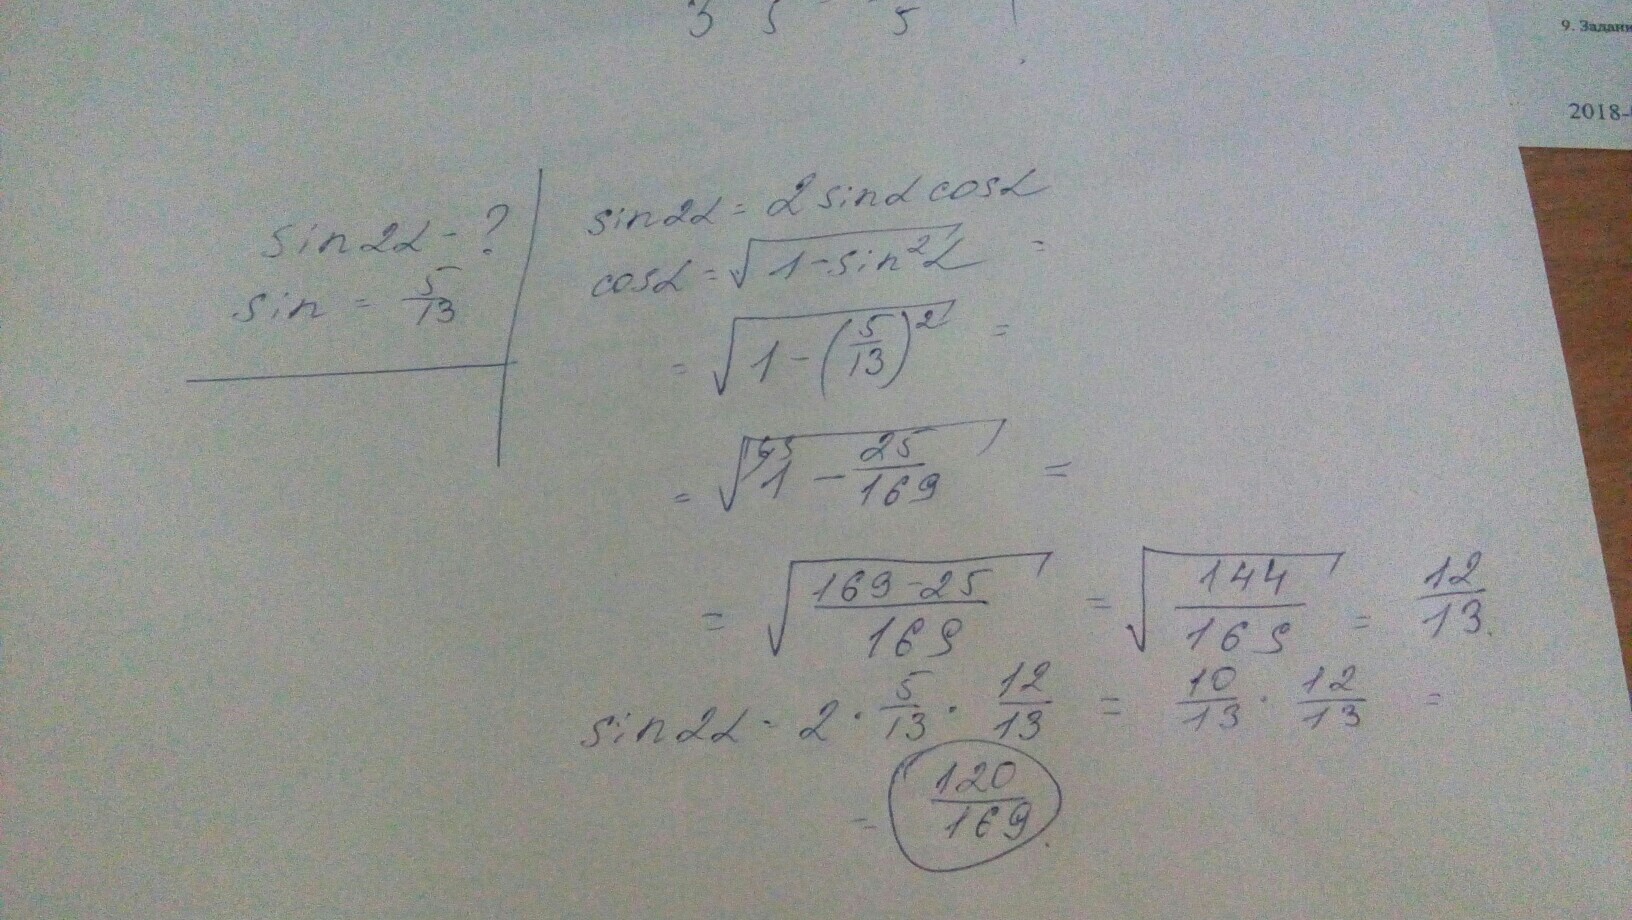 3 5 5
9. Задани
2018-
sin2α - ?
sin = 5/13
sin2α = 2 sinα cosα
cosα = √(1-sin²α) =
= √(1-(5/13)²) =
= √(1 - 25/169) =
= √((169-25)/169) = √(144/169) = 12/13.
sin2α = 2 · 5/13 · 12/13 = 10/13 · 12/13 =
= 120/169.